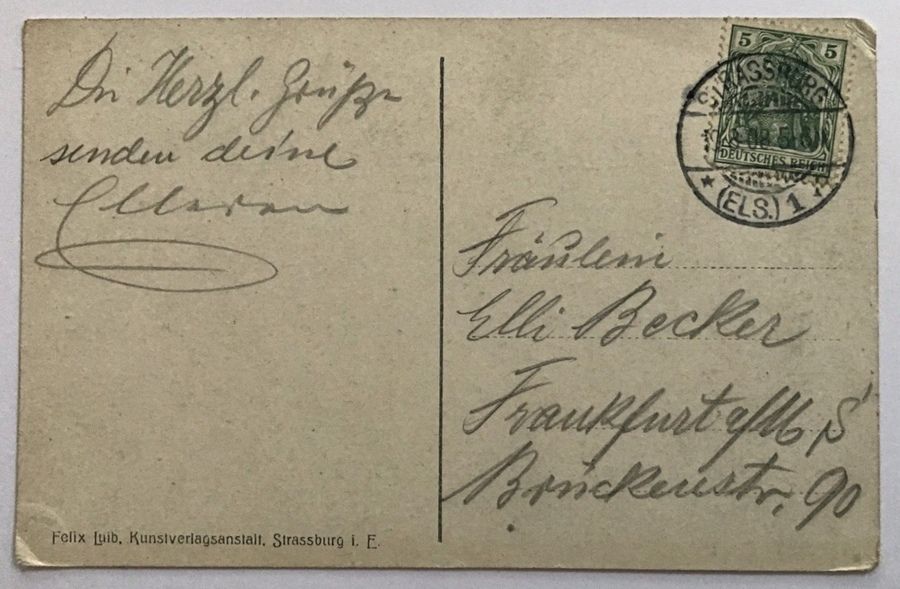 Die Herzl. Grüße
senden deine
Elleren
5 5
DEUTSCHES REICH
STRASSBURG
(ELS.) 1
Fräulein
Elli Becker
Frankfurt a/M S
Brückenstr. 90
Felix Luib, Kunstverlagsanstalt, Strassburg i. E.